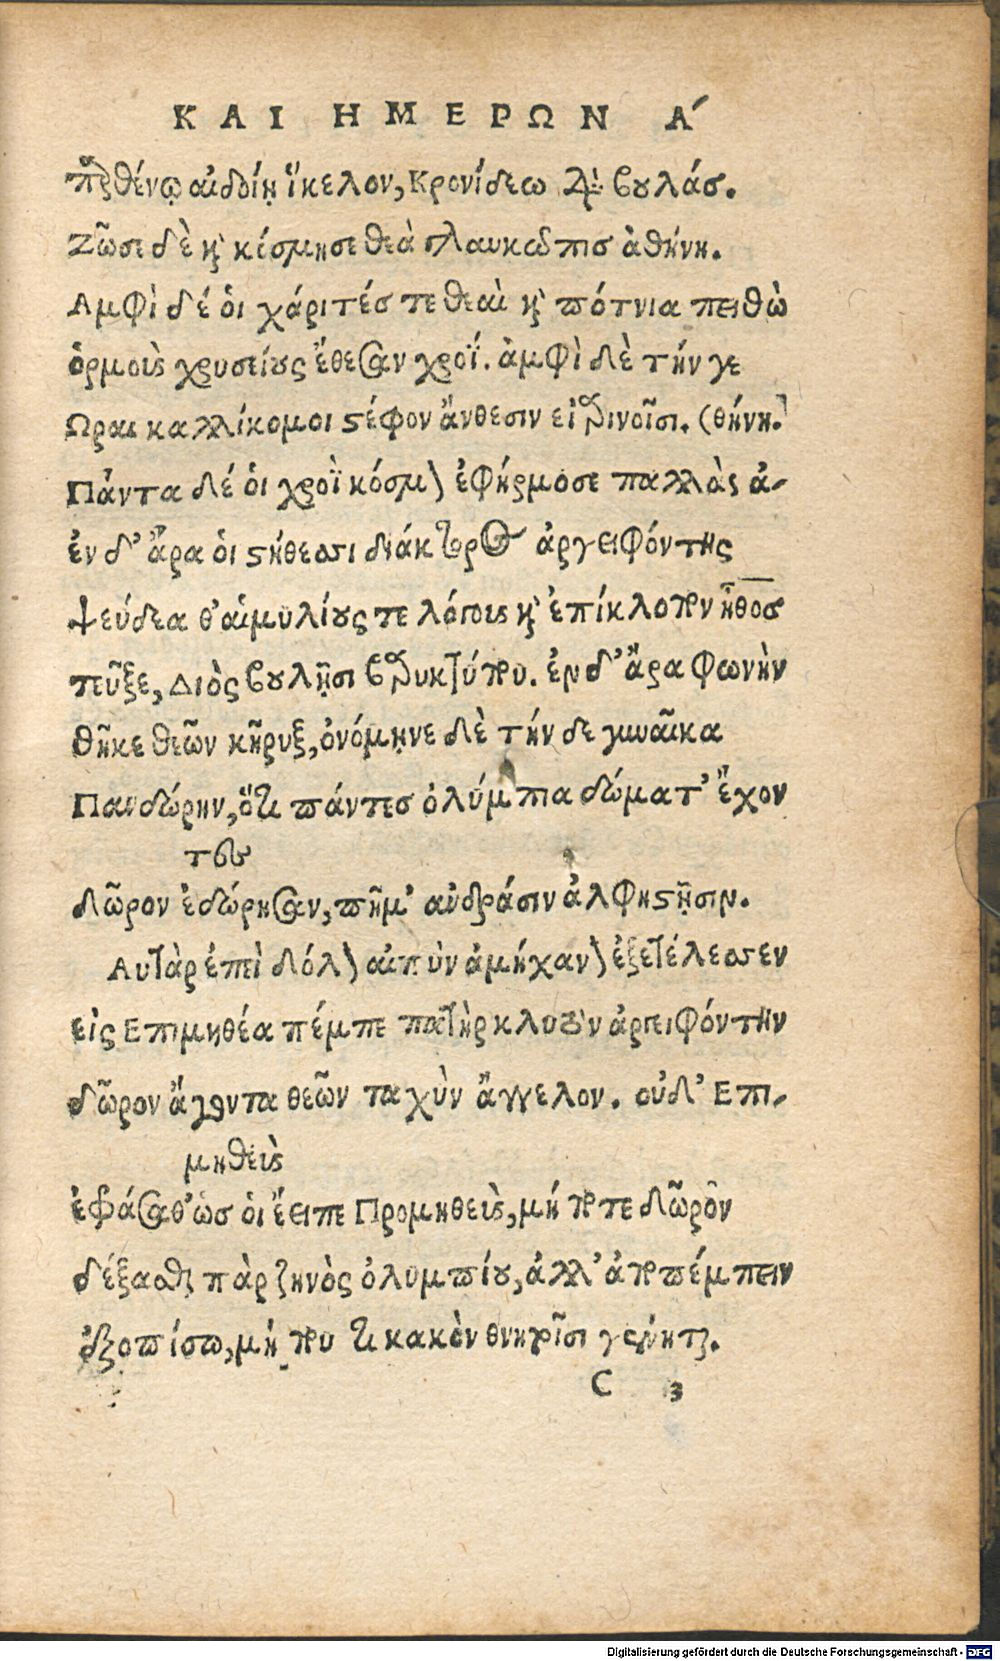 ΚΑΙ ΗΜΕΡΩΝ Α´
παρθένῳ αἰδοίῃ ἴκελον, Κρονίδεω διὰ βουλάσ.
Ζῶσε δὲ καὶ κόσμησε θεὰ γλαυκῶπισ ἀθήνη.
Αμφὶ δέ ὁι χάριτέσ τε θεαὶ καὶ πότνια πειθὼ
ὁρμοὺς χρυσείους ἔθεσαν χροΐ. ἀμφὶ δὲ τήν γε
Ωραι καλλίκομοι στέφον ἄνθεσιν εἰαρινοῖσι. (θήνη.
Πάντα δέ ὁι χροῒ κόσμον ἐφήρμοσε παλλὰς ἀ-
ἐν δ' ἄρα ὁι στήθεσσι διάκτορος ἀργειφόντης
ψεύδεα θ' αἱμυλίους τε λόγους καὶ ἐπίκλοπον ἦθοσ
τεῦξε, Διὸς βουλῇσι βαρυκτύπου. ἐν δ' ἄρα φωνὴν
θῆκε θεῶν κῆρυξ, ὀνόμῃνε δὲ τήν δε γυναῖκα
Πανδώρην, ὅτι πάντεσ ὀλύμπια δώματ' ἔχον
τες
δῶρον ἐδώρησαν, πῆμ' ἀνδράσιν ἀλφηστῇσιν.
Αυτὰρ ἐπεὶ δόλον αἰπὺν ἀμήχανον ἐξετέλεσσεν
εἰς Επιμηθέα πέμπε πατὴρ κλυτὸν ἀργειφόντην
δῶρον ἄγοντα θεῶν ταχὺν ἄγγελον. οὐδ' Επι-
μηθεὺς
ἐφράσαθ' ὡσ ὁι ἔειπε Προμηθεὺς, μή ποτε δῶρον
δέξασθαι πὰρ ζηνὸς ὀλυμπίου, ἀλλ' ἀποπέμπειν
ἐξοπίσω, μή που τι κακὸν θνητοῖσι γένηται.
C 3
Digitalisierung gefördert durch die Deutsche Forschungsgemeinschaft - DFG